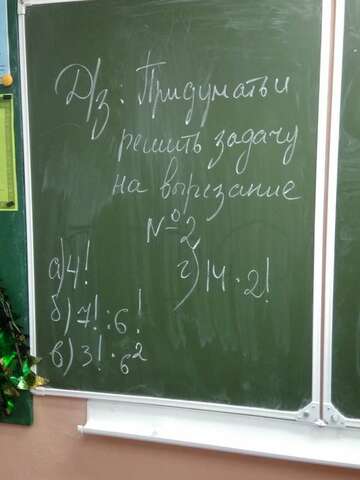 Д/з: Придумать и
решить задачу
на вырезание
№2
а) 4!
б) 7! : 6!
в) 3! · 6²
г) 14 · 2!